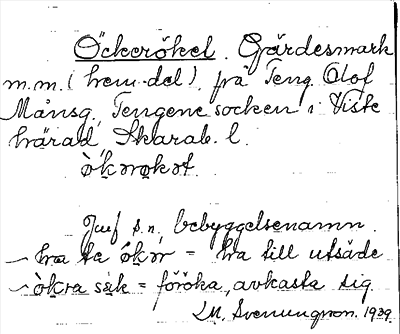 Öckerökel. Gärdesmark
m.m. (hem. del), på Teng Olof
Månsg, Tengene socken i Viste
härad, Skarab. l.
Jmf s.n. bebyggelsenamn.
- ha te ökör = ha till utsäde
- ökra säk = föröka, avkasta sig
M. Svenungson. 1939.